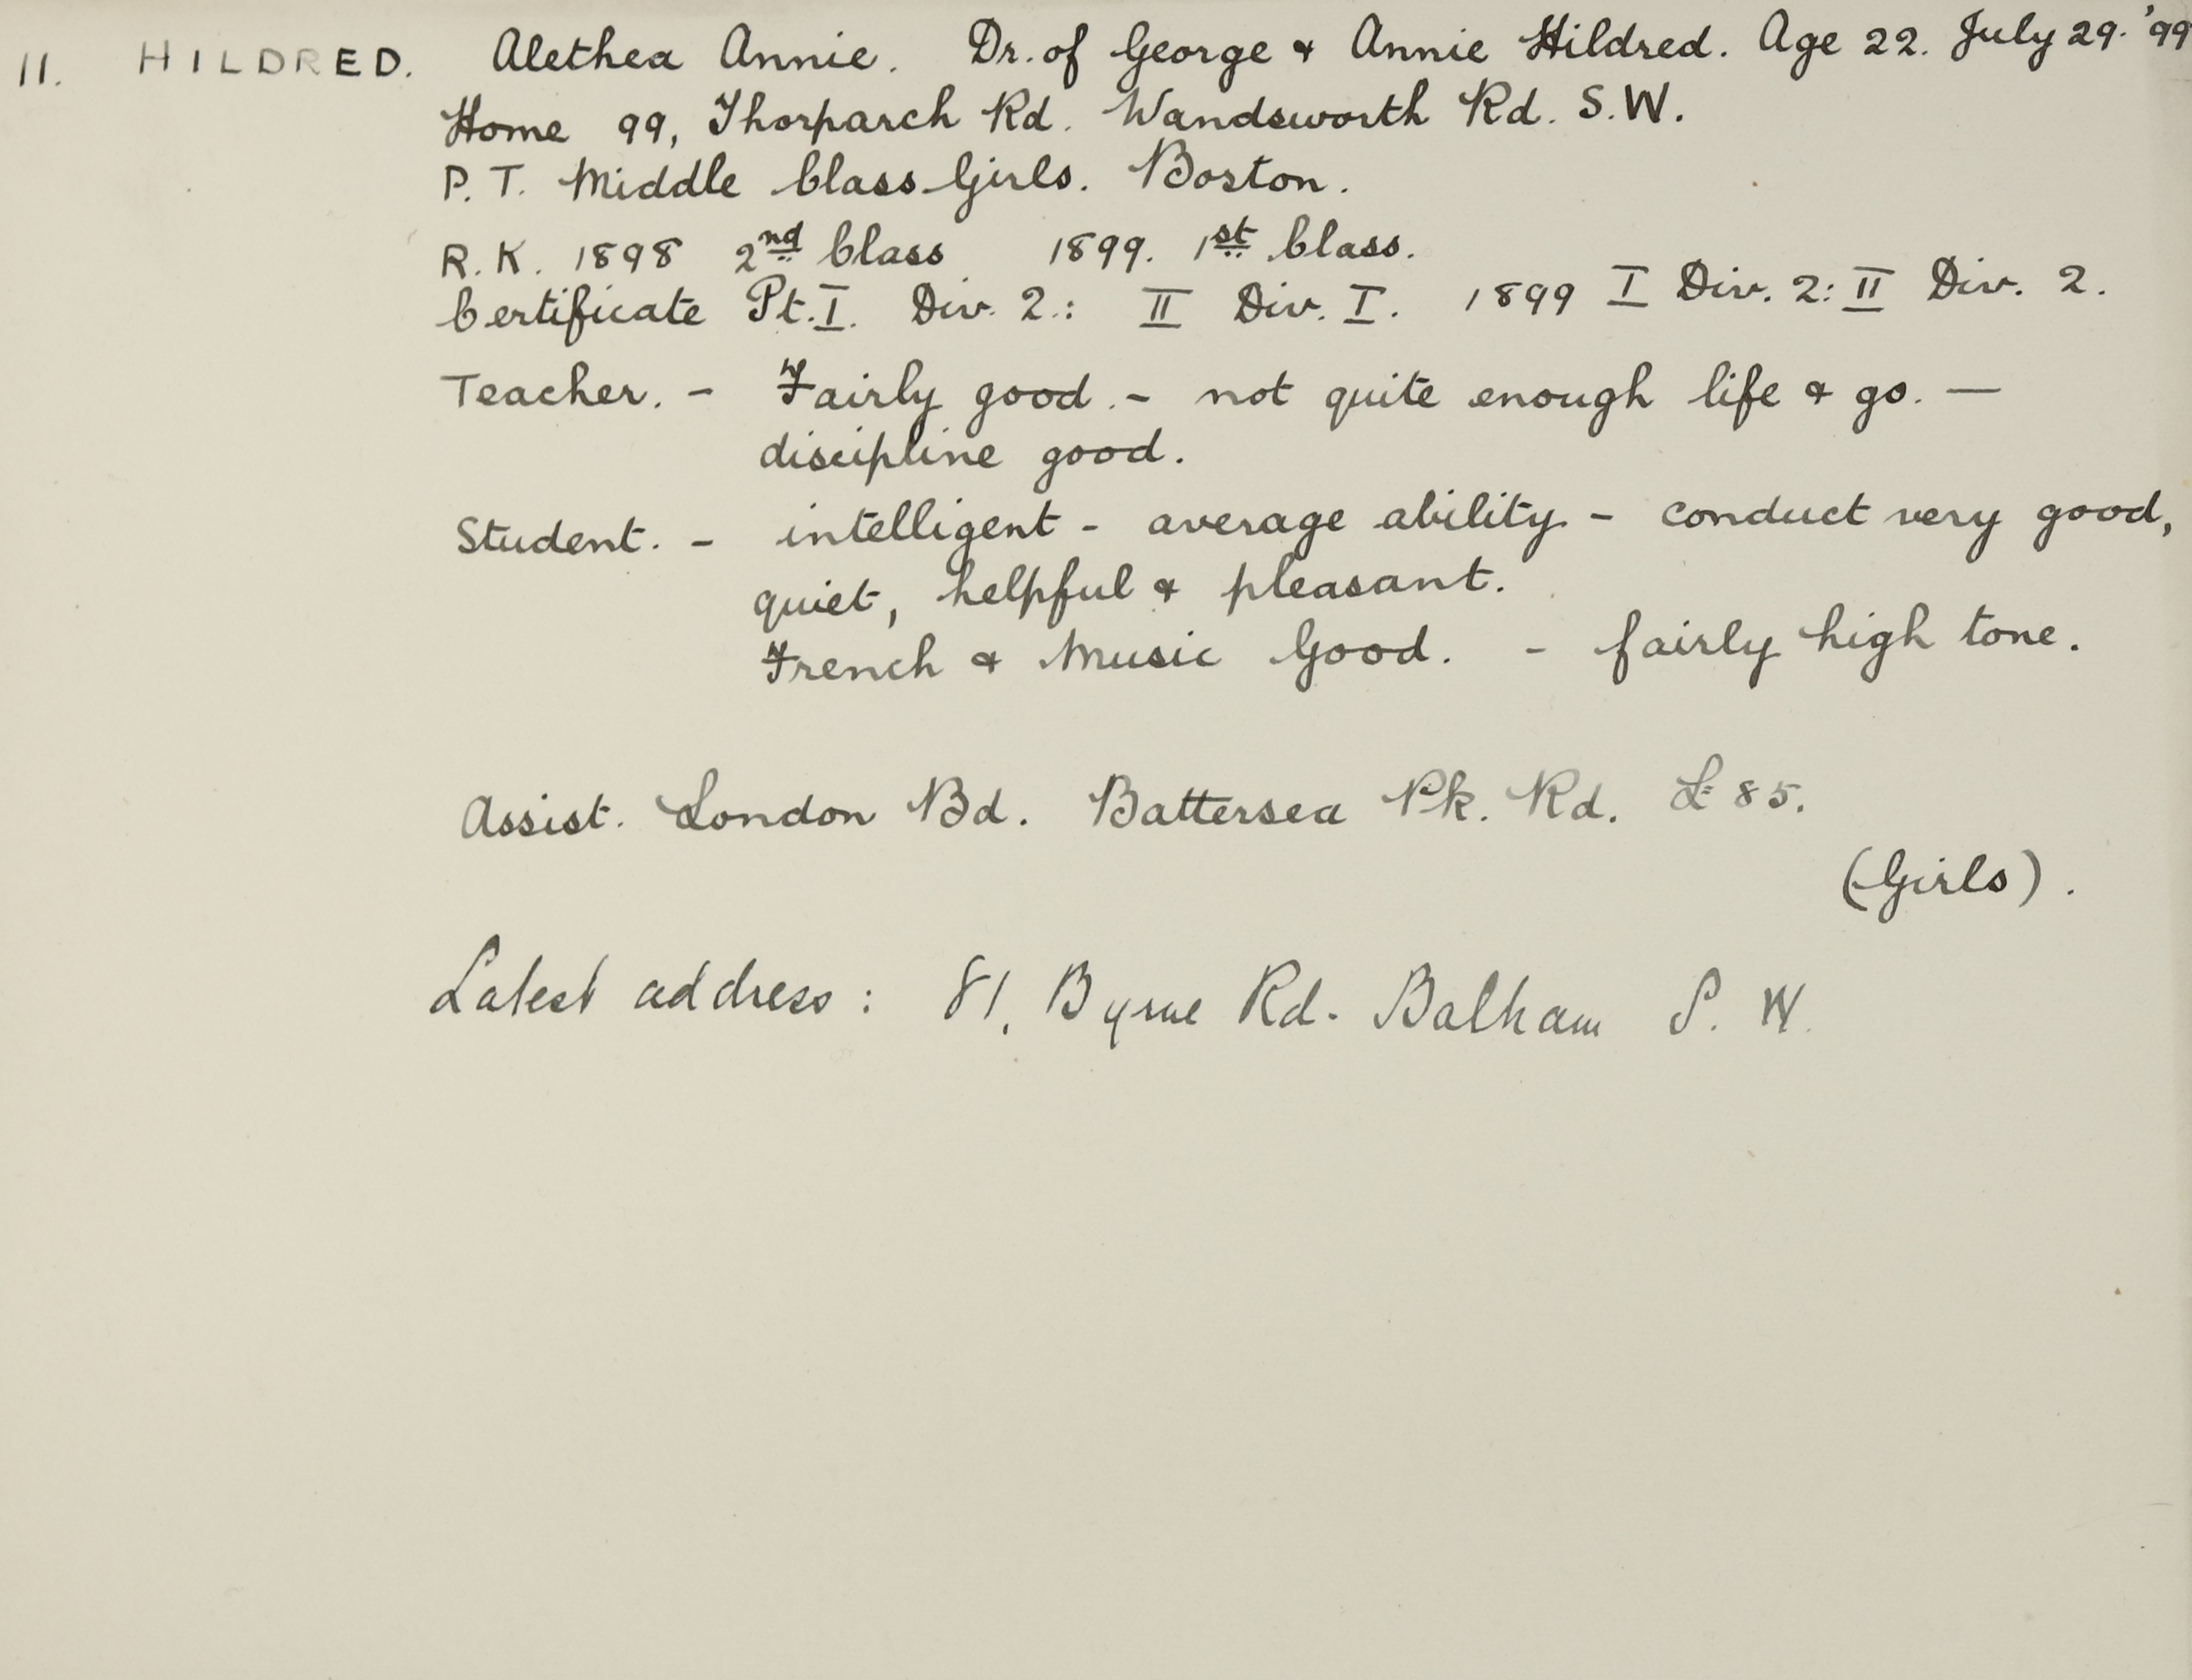 11. HILDRED. Alethea Annie. Dr. of George & Annie Hildred. Age 22. July 29. '99
Home 99, Thorparch Rd. Wandsworth Rd. S.W.
P.T. Middle Class Girls. Boston.
R.K. 1898 2nd Class 1899. 1st Class.
Certificate Pt. I. Div. 2.: II Div. I. 1899 I Div. 2: II Div. 2.
Teacher. - Fairly good. - not quite enough life & go. —
discipline good.
Student. - intelligent - average ability - conduct very good,
quiet, helpful & pleasant.
French & Music Good. - fairly high tone.
Assist. London Bd. Battersea Pk. Rd. £85.
(Girls).
Latest address: 81, Byrne Rd. Balham S. W.